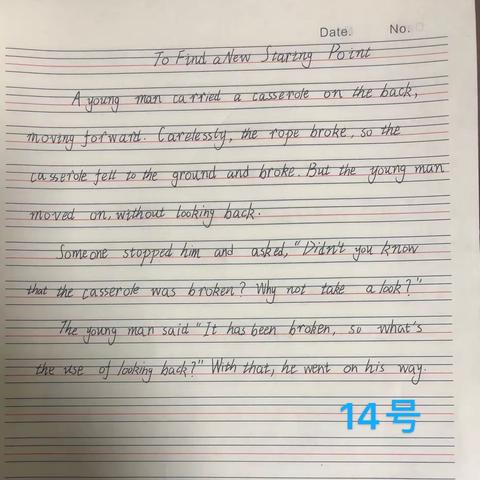 Date. No.
To Find a New Starting Point
A young man carried a casserole on the back,
moving forward. Carelessly, the rope broke, so the
casserole fell to the ground and broke. But the young man
moved on, without looking back.
Someone stopped him and asked, "Didn't you know
that the casserole was broken? Why not take a look?"
The young man said "It has been broken, so what's
the use of looking back?" With that, he went on his way.
14号